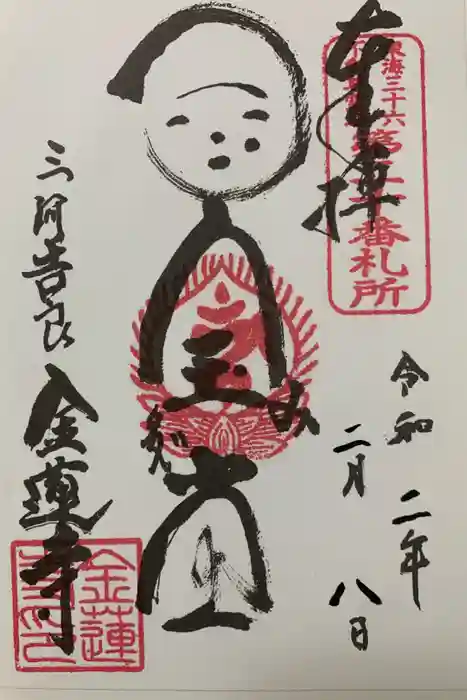 奉拝
東海三十六
第二十番札所
令和二年
二月八日
宝
みだ
堂
三河吉良
金蓮寺
金蓮
寺印